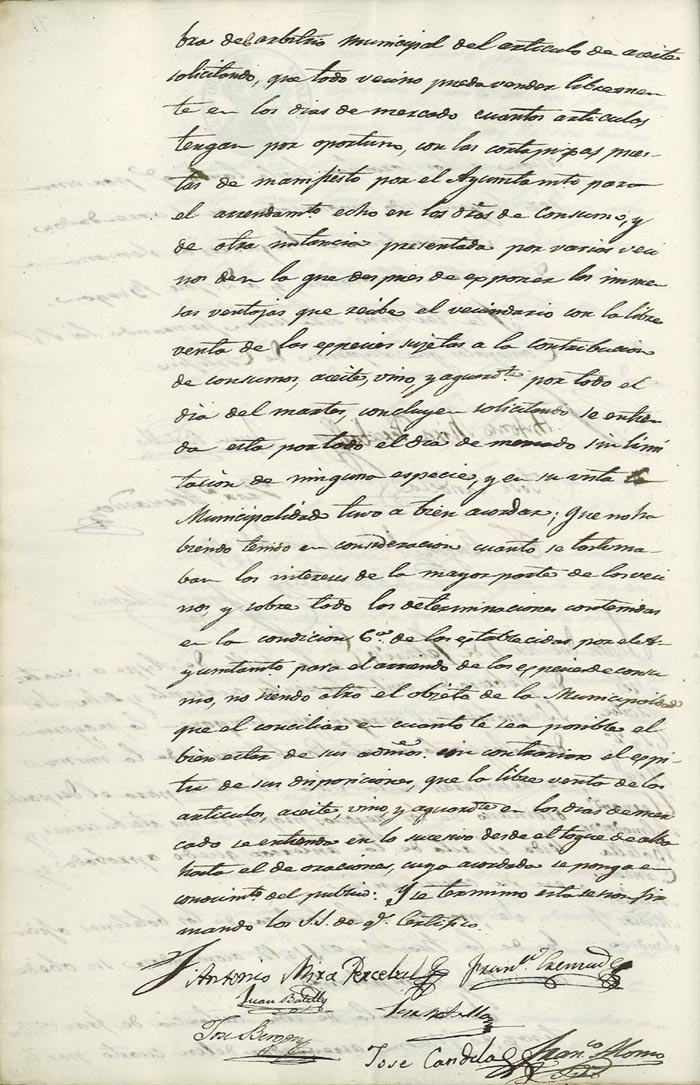 bra del arbitrio municipal del articulo de aceite
solicitando, que todo vecino pueda vender libremen-
te en los dias de mercado cuantos articulos
tengan por oportuno, con las cortapizas pues-
tas de manifiesto por el Ayuntamto para
el arrendamto echo en los dias de Consumo, y
de otra instancia presentada por varios veci
nos de en la que despues de exponer las inmen
sas ventajas que recibe el vecindario con la libre
venta de las especies sujetas a la contribucion
de consumos, aceite, vino, y aguardte por todo el
dia del martes, concluyen solicitando se entien
da esta por todo el dia de mercado sin limi
tación de ninguna especie, y en su vista la
Municipalidad tuvo a bien acordar; Que no ha
biendo tenido en consideracion cuanto se lastima
ban los intereses de la mayor parte de los veci
nos y sobre todo las determinaciones contenidas
en la condicion 6ª de las establecidas por el A-
yuntamto para el arriendo de las especies de consu
mo, no siendo otro el objeto de la Municipalidad
que el conciliar en cuanto le sea posible el
bien estar de sus admos. sin contrariar el espi-
tu de sus disposiciones, que la libre venta de los
articulos, aceite, vino, y aguardte en los dias de mer
cado se entienda en lo sucesivo desde el toque de alba
hasta el de oraciones, cuyo acordado se ponga en
conocimto del publico. Y se termino esta sesion fir
mando los S.S. de q. Certifico.
Antonio Mira Perceval Franco
Juan Batlle
Jose Berger
Jose Candela Franco Alonso